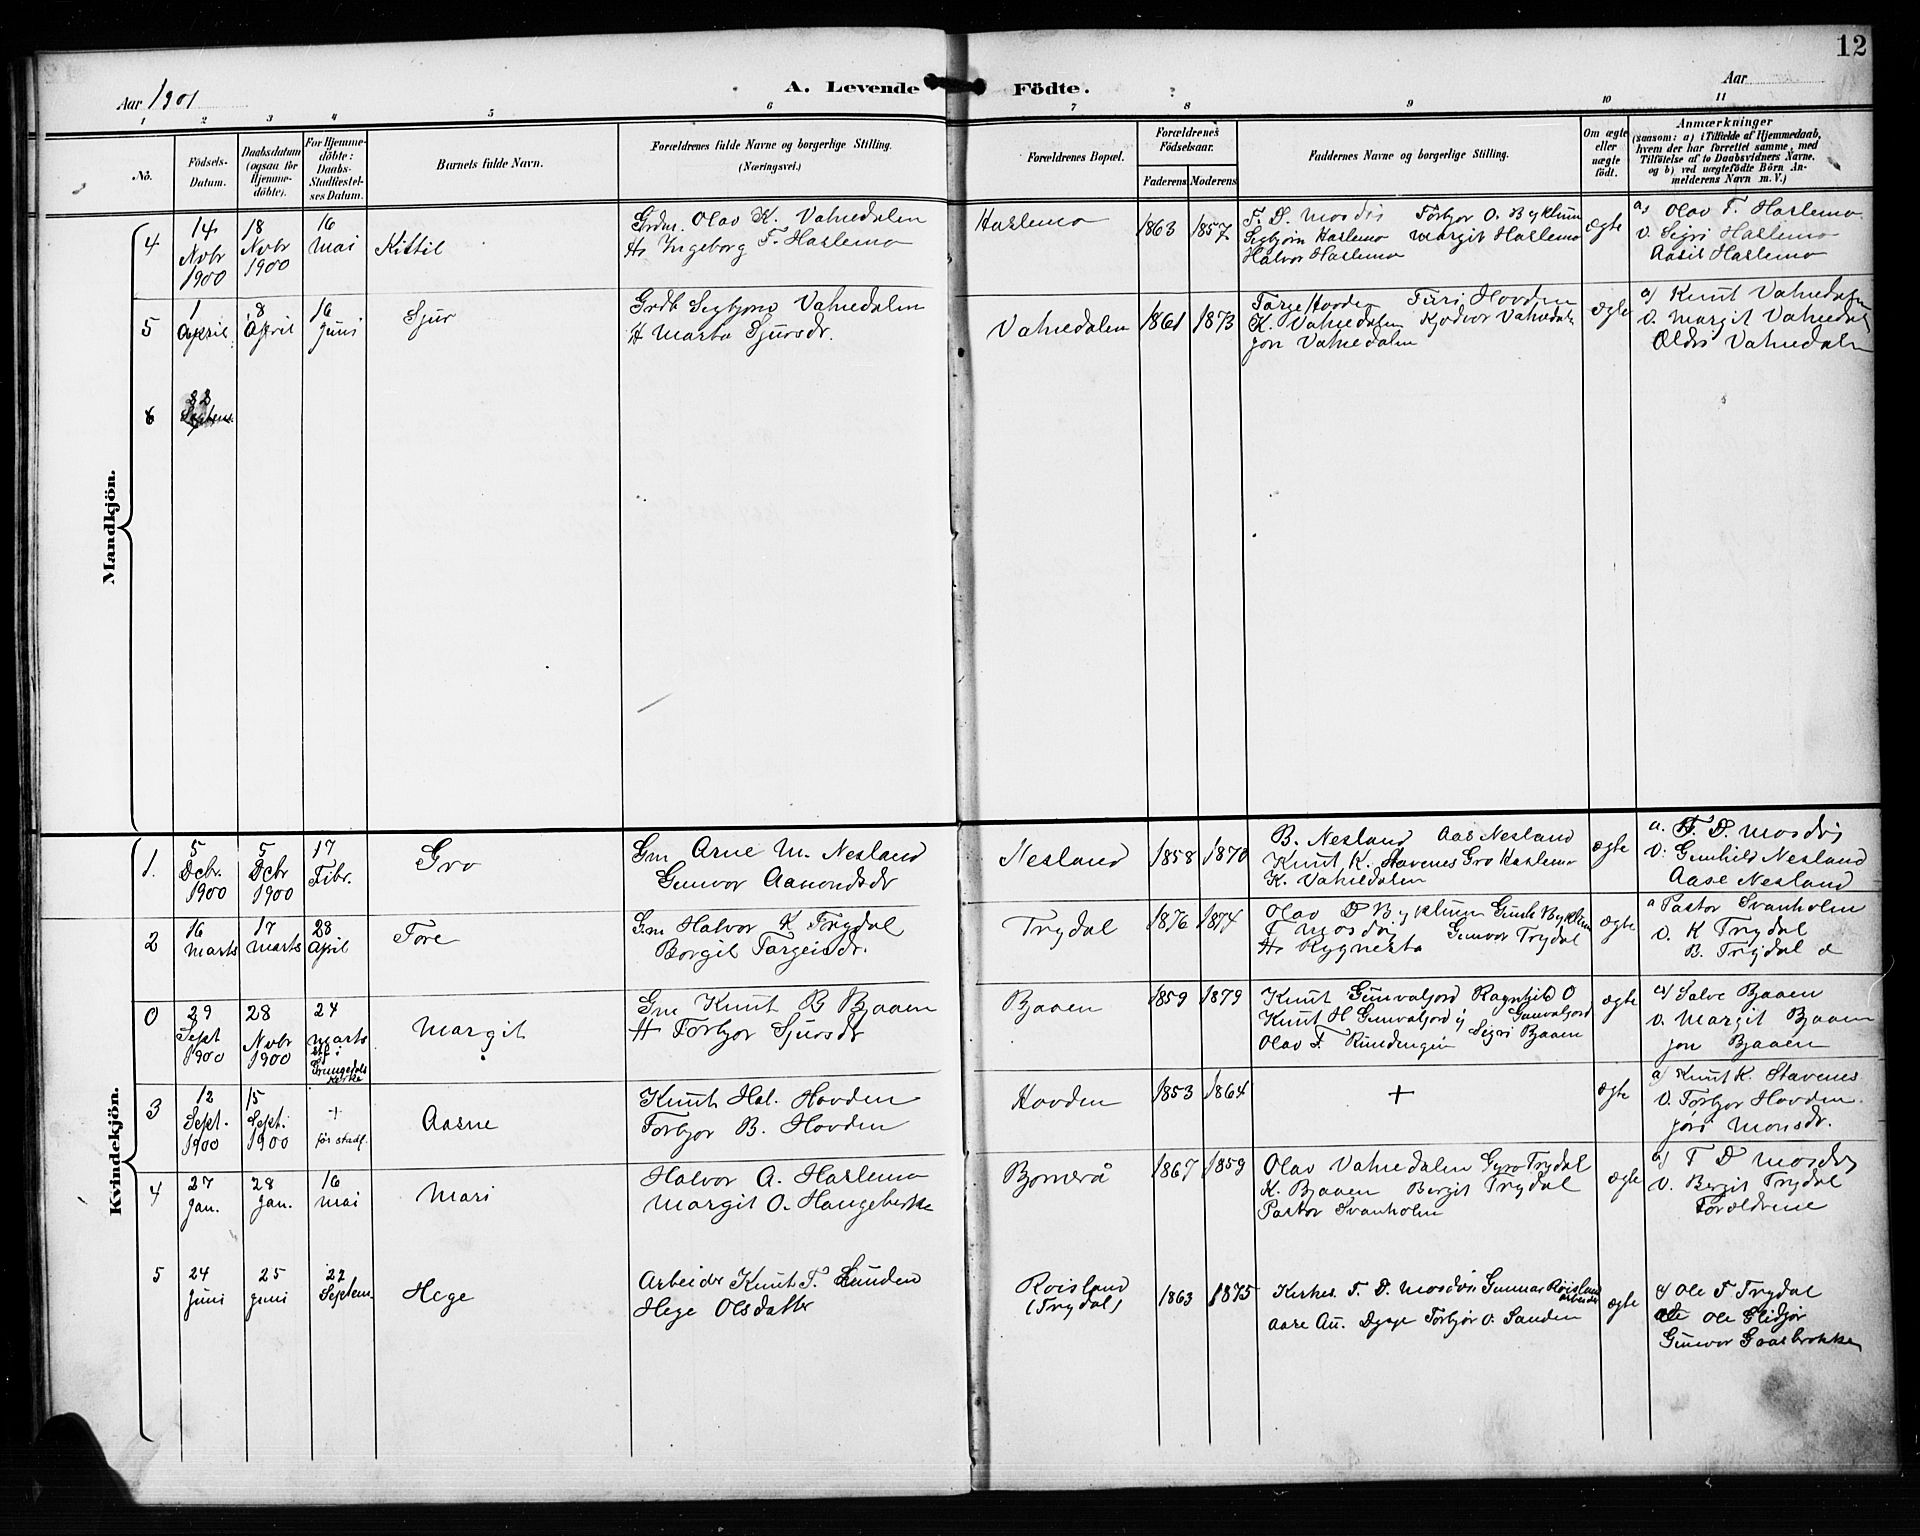 12
Aar 1901
A. Levende Födte.
Aar
1 2 3 4 5 6 7 8 9 10 11
No.
Födsels-
Datum.
Daabsdatum
(ogsaa for
Hjemme-
döbte).
For Hjemme-
döbte:
Daabs-
Stadfæstel-
ses Datum.
Barnets fulde Navn.
Forældrenes fulde Navne og borgerlige Stilling.
(Næringsvei.)
Forældrenes Bopæl.
Forældrenes
Födselsaar.
Faderens Moderens
Faddernes Navne og borgerlige Stilling.
Om ægte
eller
uægte
födt.
Anmærkninger
(saasom: a) i Tilfælde af Hjemmedaab,
hvem der har forrettet samme, med
Tilföielse af to Daabsvidners Navne,
og b) ved uægtefödte Börn An-
melderens Navn m. V.)
Mandkjön.
4
14
Nvbr
1900
18
Nvbr
1900
16
Mai
Kittil
Grdm. Olav K. Vatnedalen
H Ingeborg T. Hartemo
Hartemo
1863 1857
T. D. Mosdöi Torbjor O. Byklum
Segbjörn Hartemo Margit Hartemo
Halvor Hartemo
ægte
a) Olav T. Hartemo
v. Sigri Hartemo
Aasil Hartemo
5
1
April
8
April
16
Juni
Sjur
Grdb Segbjørn Vatnedalen
H Marta Sjursdr.
Vatnedalen
1861 1873
Targe Hovden Turi Hovden
K. Vatnedalen Kjødvor Vatnedal
Jon Vatnedalen
ægte
a) Knut Vatnedalen
v. Margit Vatnedal
Oldis Vatnedalen
6
22
Septem.
Kvindekjön.
1.
5
Dcbr.
1900
5
Dcbr
1900
17
Febr.
Gro
Gm Arne M. Nesland
Gunvor Aamondsdr
Nesland
1858 1870
B. Nesland Aas Nesland
Knut K. Stavenes Gro Hartemo
K. Vatnedalen
ægte
a. T. D. Mosdöi
v. Gunhild Nesland
Aase Nesland
2
16
Marts
17
Marts
28
April
Tore
Gm Halvor K Trydal
Borgil Targeisdr.
Trydal
1876 1874
Olav D Byklum Gunh Byklum
T Mosdöi Gunvor Trydal
H Rygnesta
ægte
a Pastor Svanholm
v. K Trydal
B. Trydal
0
29
Sept
1900
28
Nvbr
1900
24
Marts
i
Grungedals
Kirke
Margit
Gm Knut B Bjaaen
H Torbjor Sjursdr
Bjaaen
1859 1879
Knut Gunvaljord Ragnhild O
Knut H Gunvaljord Gunvaljord
Olav T. Sigri Bjaaen
ægte
a) Salve Bjaaen
v. Margit Bjaaen
Jon Bjaaen
3
12
Sept.
1900
15
Sept.
1900
+
før stadf.
Aasne
Knut Hal. Hovden
Torbjor B. Hovden
Hovden
1853 1864
+
ægte
a) Knut K. Stavenes
v. Torbjor Hovden.
Jöri Monsdr.
4
27
Jan.
28
Jan.
16
Mai
Mari
Halvor A. Hartemo
Margit O. Haugebekke
Bjørnerå
1867 1859
Olav Vatnedalen Gyro Trydal
K. Bjaaen Bergit Trydal
Pastor Svanholm
ægte
a) T D Mosdöi
v. Bergit Trydal
Forældrene
5
24
Juni
25
Juni
22
Septem.
Hege
Arbeider Knut T. Sanden
Hege Olsdatter
Røisland
(Trydal)
1863 1875
Kirkes. T. D. Mosdöi Gunnar Røisland
arbeider
Aase An. Dysje Torbjør O. Sanden
ægte
a) Ole T Trydal
Ole Glidjør
Gunvor Graasbrokke